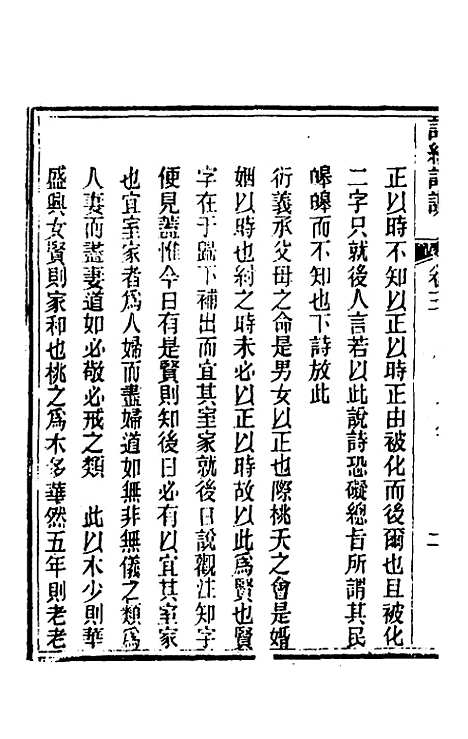 正以時不知以正以時正由被化而後爾也且被化
二字只就後人言若以此說詩恐礙總旨所謂其民
皞皞而不知也下詩放此
衍義承父母之命是男女以正也際桃夭之會是婚
姻以時也紂之時未必以正以時故以此為賢也賢
字在于歸下補出而宜其室家就後日說觀注知字
便見蓋惟今日有是賢則知後日必有以宜其室家
也宜室家者為人婦而盡婦道如無非無儀之類為
人妻而盡妻道如必敬必戒之類　此以木少則華
盛興女賢則家和也桃之為木多華然五年則老老